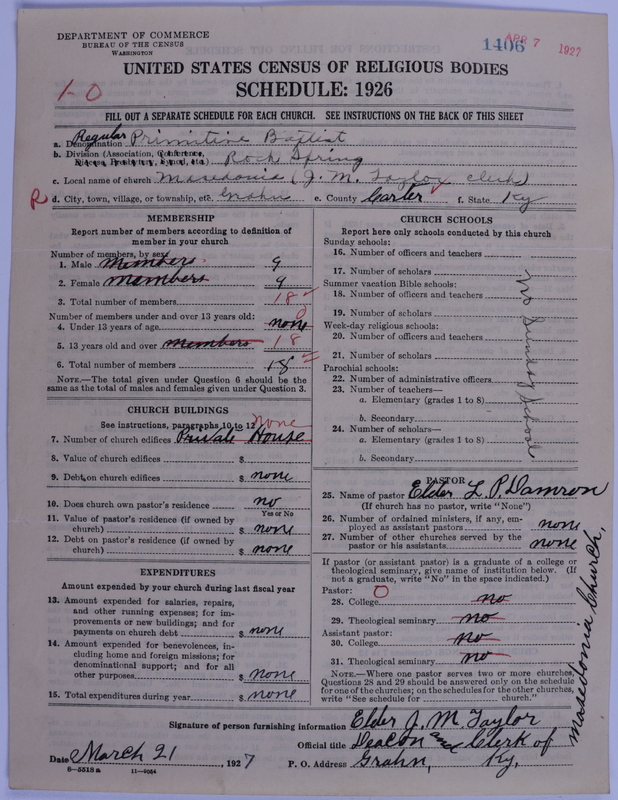 DEPARTMENT OF COMMERCE
BUREAU OF THE CENSUS
WASHINGTON
1406 APR 7 1927
UNITED STATES CENSUS OF RELIGIOUS BODIES
SCHEDULE: 1926
1-0
FILL OUT A SEPARATE SCHEDULE FOR EACH CHURCH. SEE INSTRUCTIONS ON THE BACK OF THIS SHEET
a. Denomination Regular Primitive Baptist
b. Division (Association, Conference, Synod, etc.) Rock Spring
c. Local name of church Masedonia (J. M. Taylor clerk)
R d. City, town, village, or township, etc. Grahn e. County Carter f. State Ky
MEMBERSHIP
Report number of members according to definition of
member in your church
Number of members, by sex:
1. Male members. 9
2. Female members 9
3. Total number of members 18
Number of members under and over 13 years old:
4. Under 13 years of age none 0
5. 13 years old and over members 18
6. Total number of members 18
NOTE.—The total given under Question 6 should be the
same as the total of males and females given under Question 3.
CHURCH BUILDINGS
See instructions, paragraphs 10 to 12 none
7. Number of church edifices Private House
8. Value of church edifices $
9. Debt on church edifices $ none
10. Does church own pastor's residence no
Yes or No
11. Value of pastor's residence (if owned by
church) $ none
12. Debt on pastor's residence (if owned by
church) $ none
EXPENDITURES
Amount expended by your church during last fiscal year
13. Amount expended for salaries, repairs,
and other running expenses; for im-
provements or new buildings; and for
payments on church debt $ none
14. Amount expended for benevolences, in-
cluding home and foreign missions; for
denominational support; and for all
other purposes $ none
15. Total expenditures during year $ none
CHURCH SCHOOLS
Report here only schools conducted by this church
Sunday schools:
16. Number of officers and teachers
17. Number of scholars
Summer vacation Bible schools:
18. Number of officers and teachers
19. Number of scholars
Week-day religious schools:
20. Number of officers and teachers
21. Number of scholars
Parochial schools:
22. Number of administrative officers
23. Number of teachers—
a. Elementary (grades 1 to 8)
b. Secondary
24. Number of scholars—
a. Elementary (grades 1 to 8)
b. Secondary
No Sunday Schools
PASTOR
25. Name of pastor Elder L. P. Damron
(If church has no pastor, write "None")
26. Number of ordained ministers, if any, em-
ployed as assistant pastors none
27. Number of other churches served by the
pastor or his assistants none
If pastor (or assistant pastor) is a graduate of a college or
theological seminary, give name of institution below. (If
not a graduate, write "No" in the space indicated.)
Pastor: 0
28. College no
29. Theological seminary no
Assistant pastor:
30. College no
31. Theological seminary no
NOTE.—Where one pastor serves two or more churches,
Questions 28 and 29 should be answered only on the schedule
for one of the churches; on the schedules for the other churches,
write "See schedule for church."
Signature of person furnishing information Elder J. M Taylor
Official title Deacon and Clerk of
masedonia Church.
Date March 21, 1927 P. O. Address Grahn, Ky,
6—5518a 11—9054